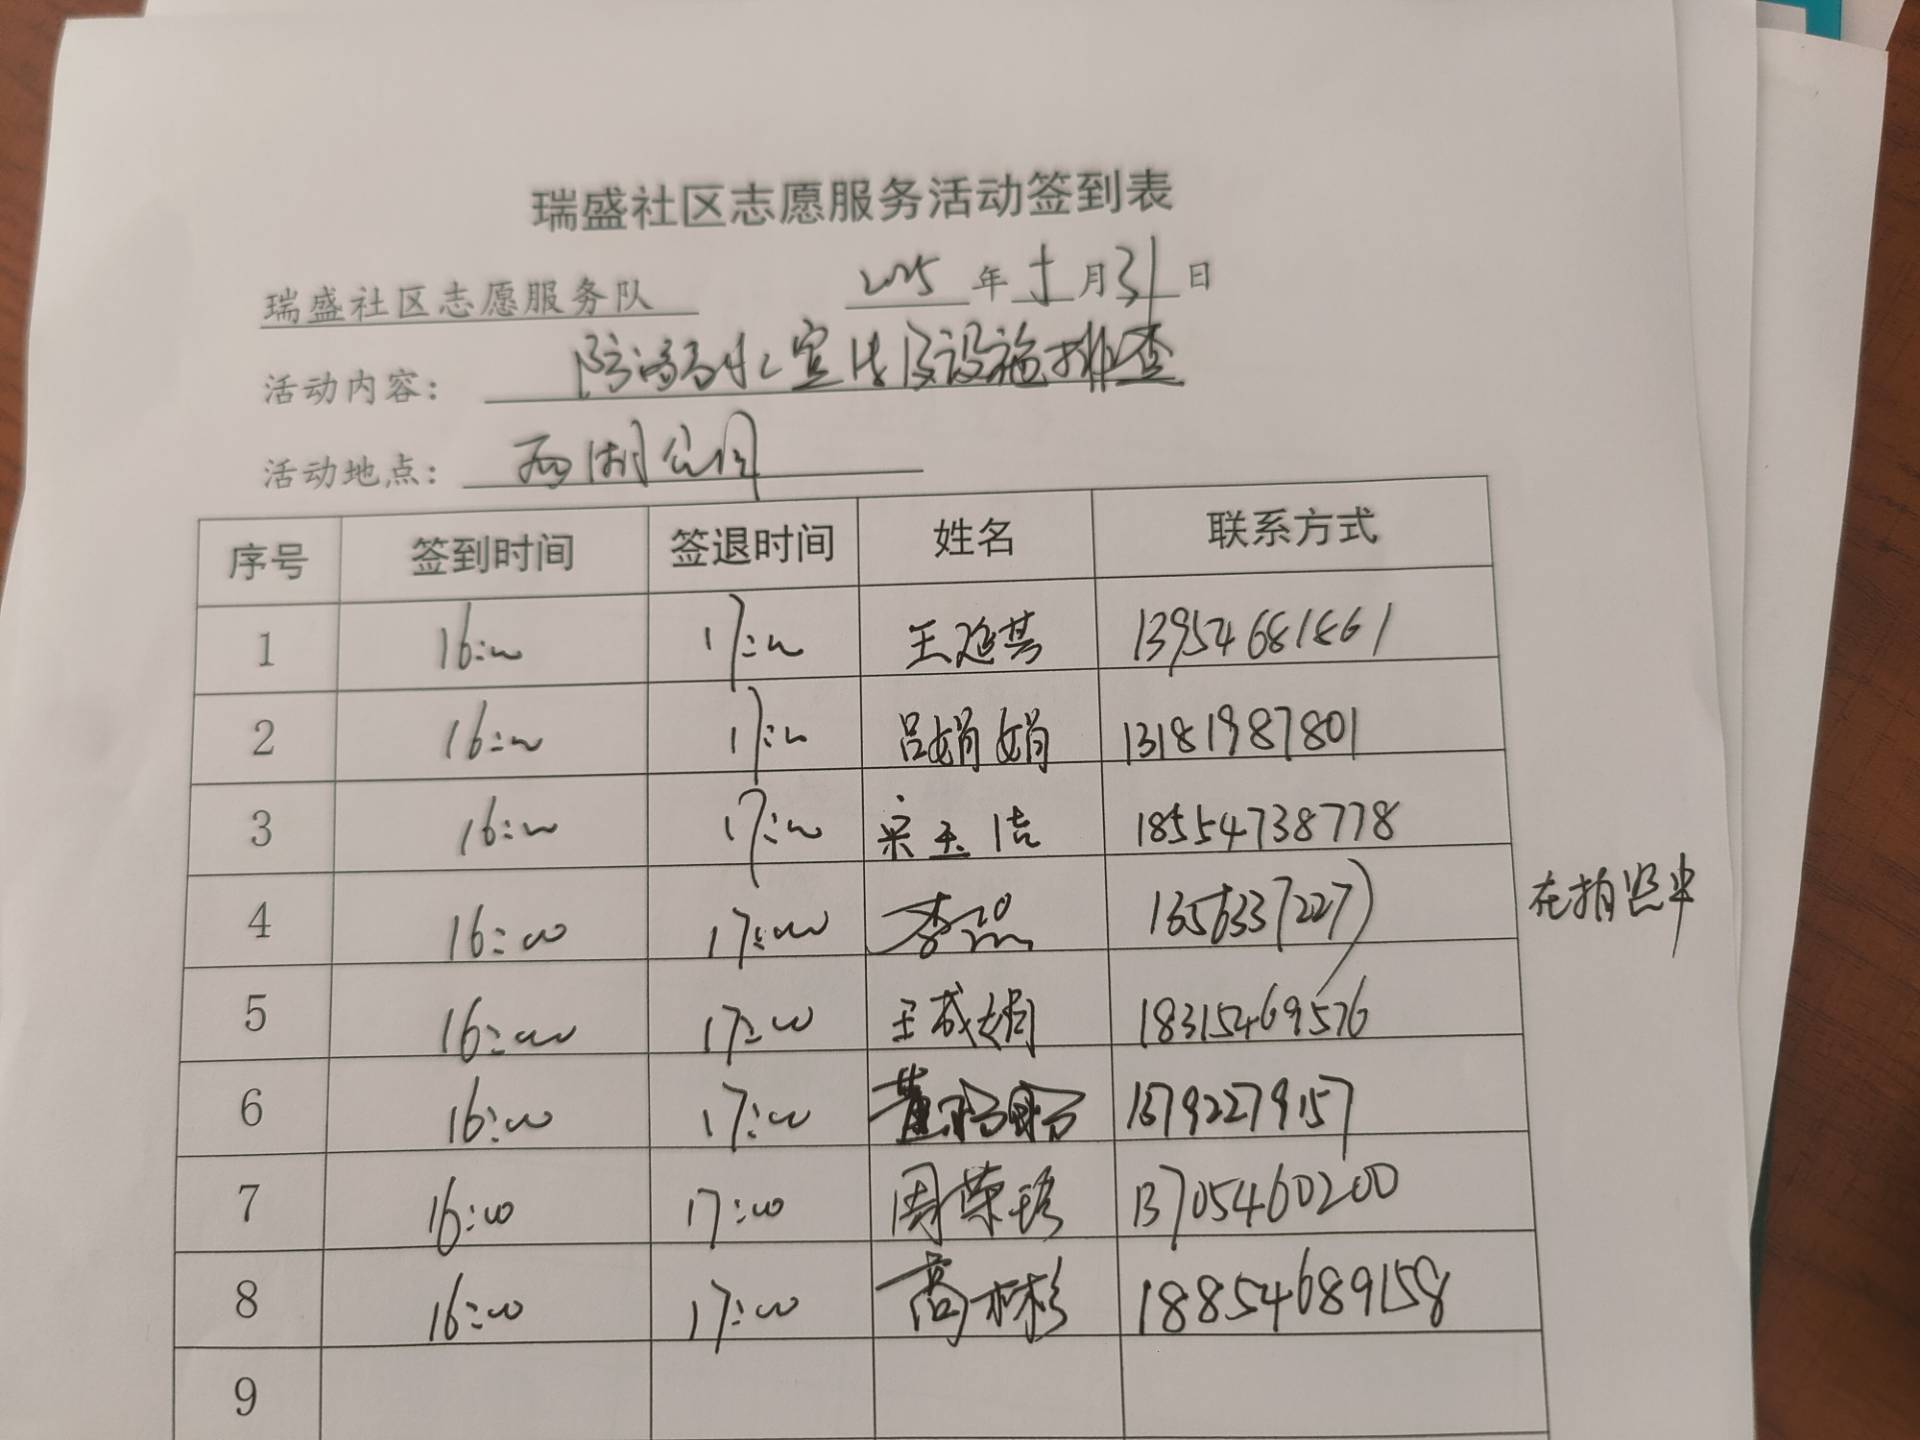 瑞盛社区志愿服务活动签到表
瑞盛社区志愿服务队 2025 年 5 月 31 日
活动内容: 防溺水宣传及设施排查
活动地点: 西湖公园
序号 签到时间 签退时间 姓名 联系方式
1 16:00 17:00 王延其 13954681861
2 16:00 17:00 吕娟娟 13181987801
3 16:00 17:00 宋玉洁 18554738778
4 16:00 17:00 李 在拍照中
5 16:00 17:00 王成娟 18315469576
6 16:00 17:00 董 13792279157
7 16:00 17:00 周荣 13705460200
8 16:00 17:00 高彬彬 18854689158
9